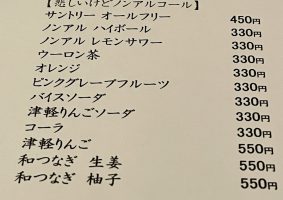 【悲しいけどノンアルコール】
サントリー オールフリー 450円
ノンアル ハイボール 330円
ノンアル レモンサワー 330円
ウーロン茶 330円
オレンジ 330円
ピンクグレープフルーツ 330円
バイスソーダ 330円
津軽りんごソーダ 330円
コーラ 330円
津軽りんご 550円
和つなぎ 生姜 550円
和つなぎ 柚子 550円